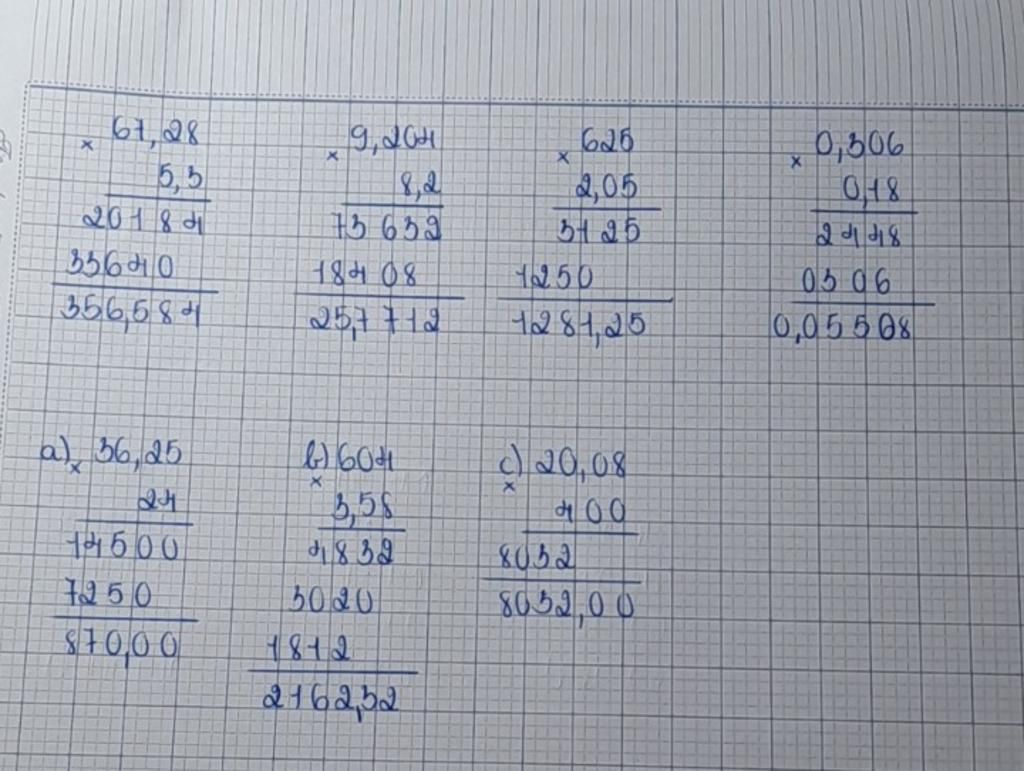 67,28
×
5,3
20184
33640
356,584
9,204
×
8,2
73632
18408
25,7712
625
×
2,05
3125
1250
1281,25
0,306
×
0,18
2448
0306
0,05508
a) 36,25
×
24
14500
7250
870,00
b) 604
×
3,58
4832
3020
1812
2162,32
c) 20,08
×
400
8032
8032,00